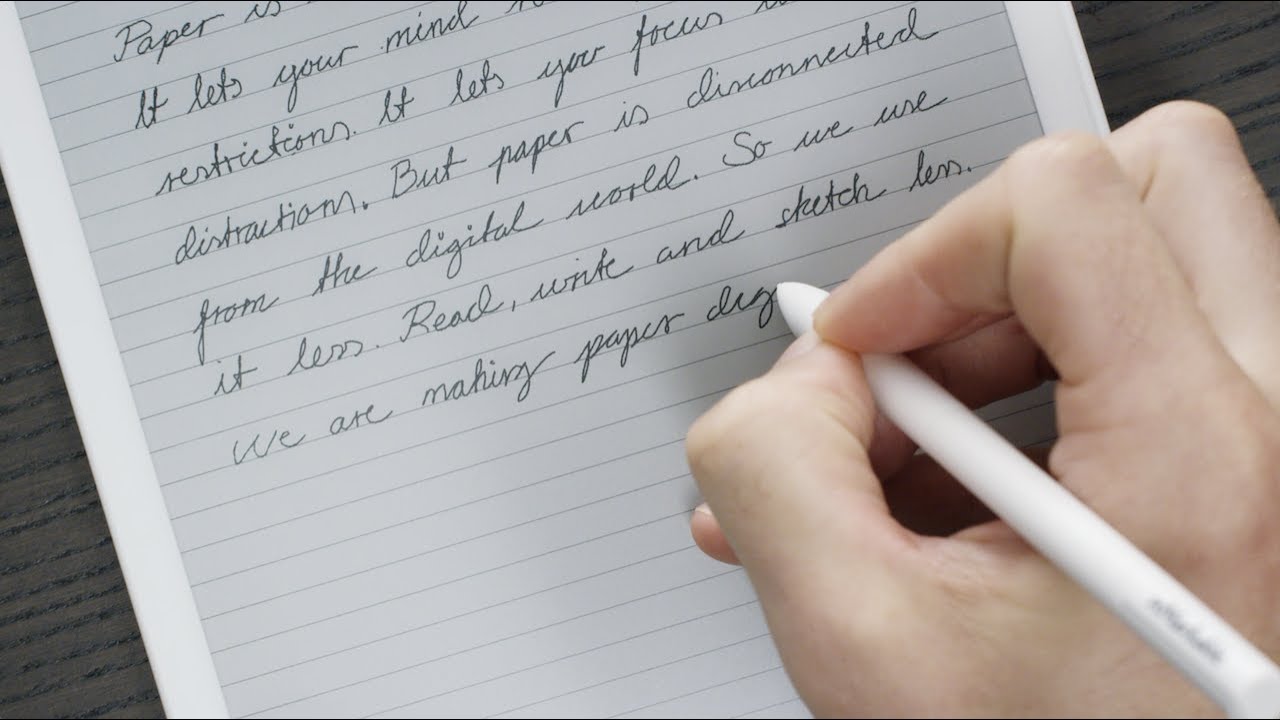 Paper is
It lets your mind
restrictions. It lets you focus
distractions. But paper is disconnected
from the digital world. So we use
it less. Read, write and sketch less.
We are making paper dig